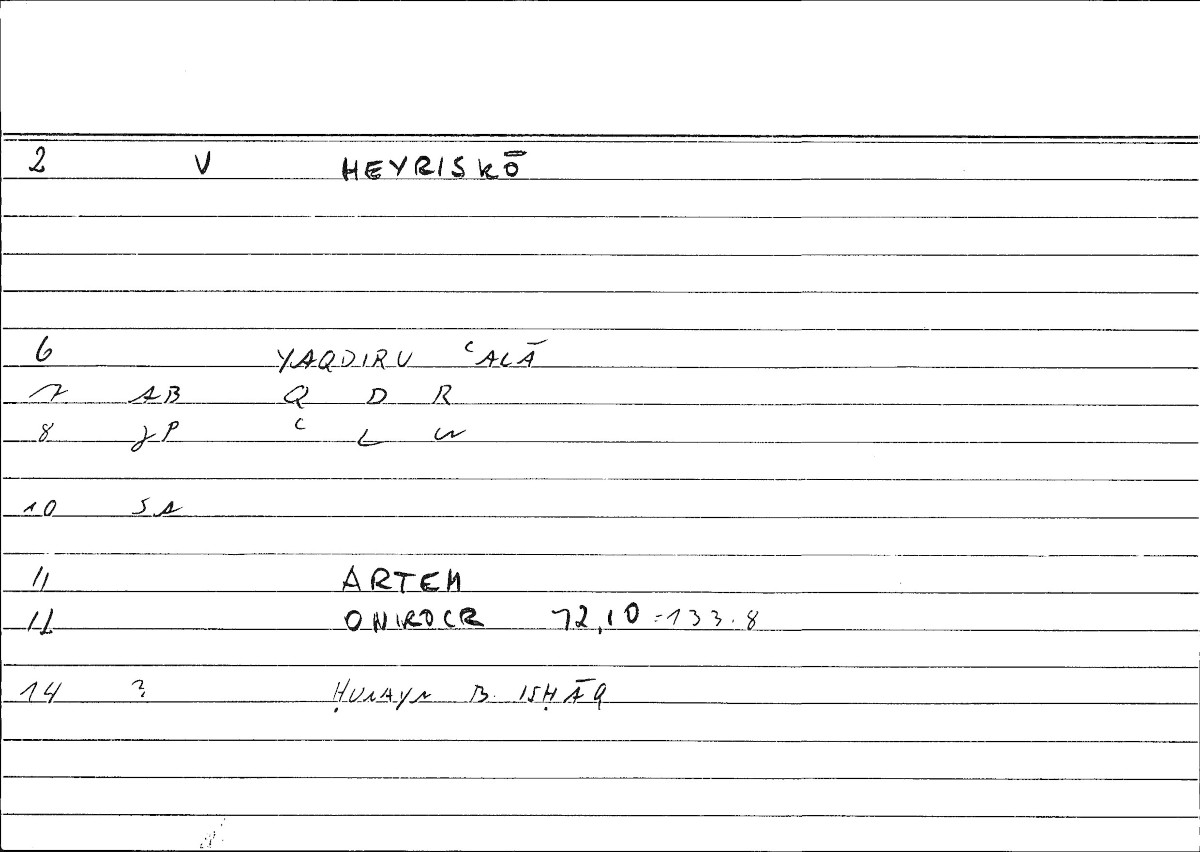 2 V HEYRISKŌ
6 YAQDIRU ʿALĀ
7 AB Q D R
8 JP ʿ L W
10 SA
11 ARTEM
12 ONIROCR 72,10 = 133.8
14 ? ḤUNAYN B. ISḤĀQ